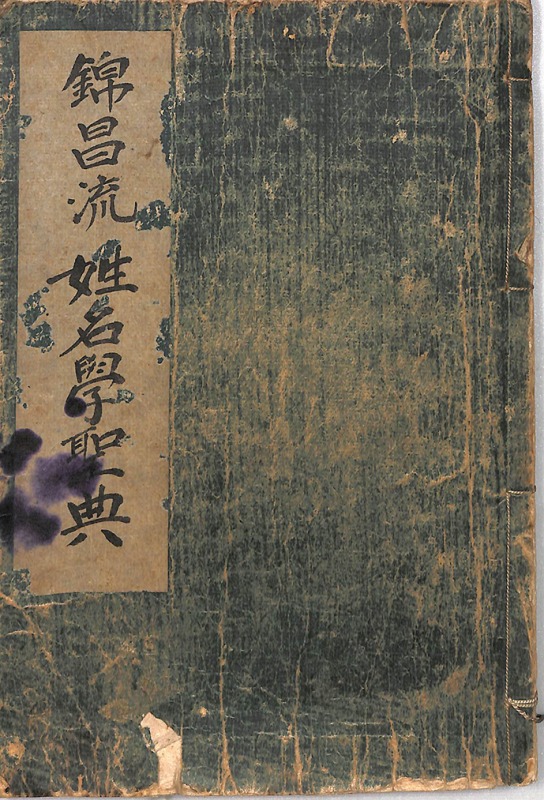 錦昌流姓名學聖典